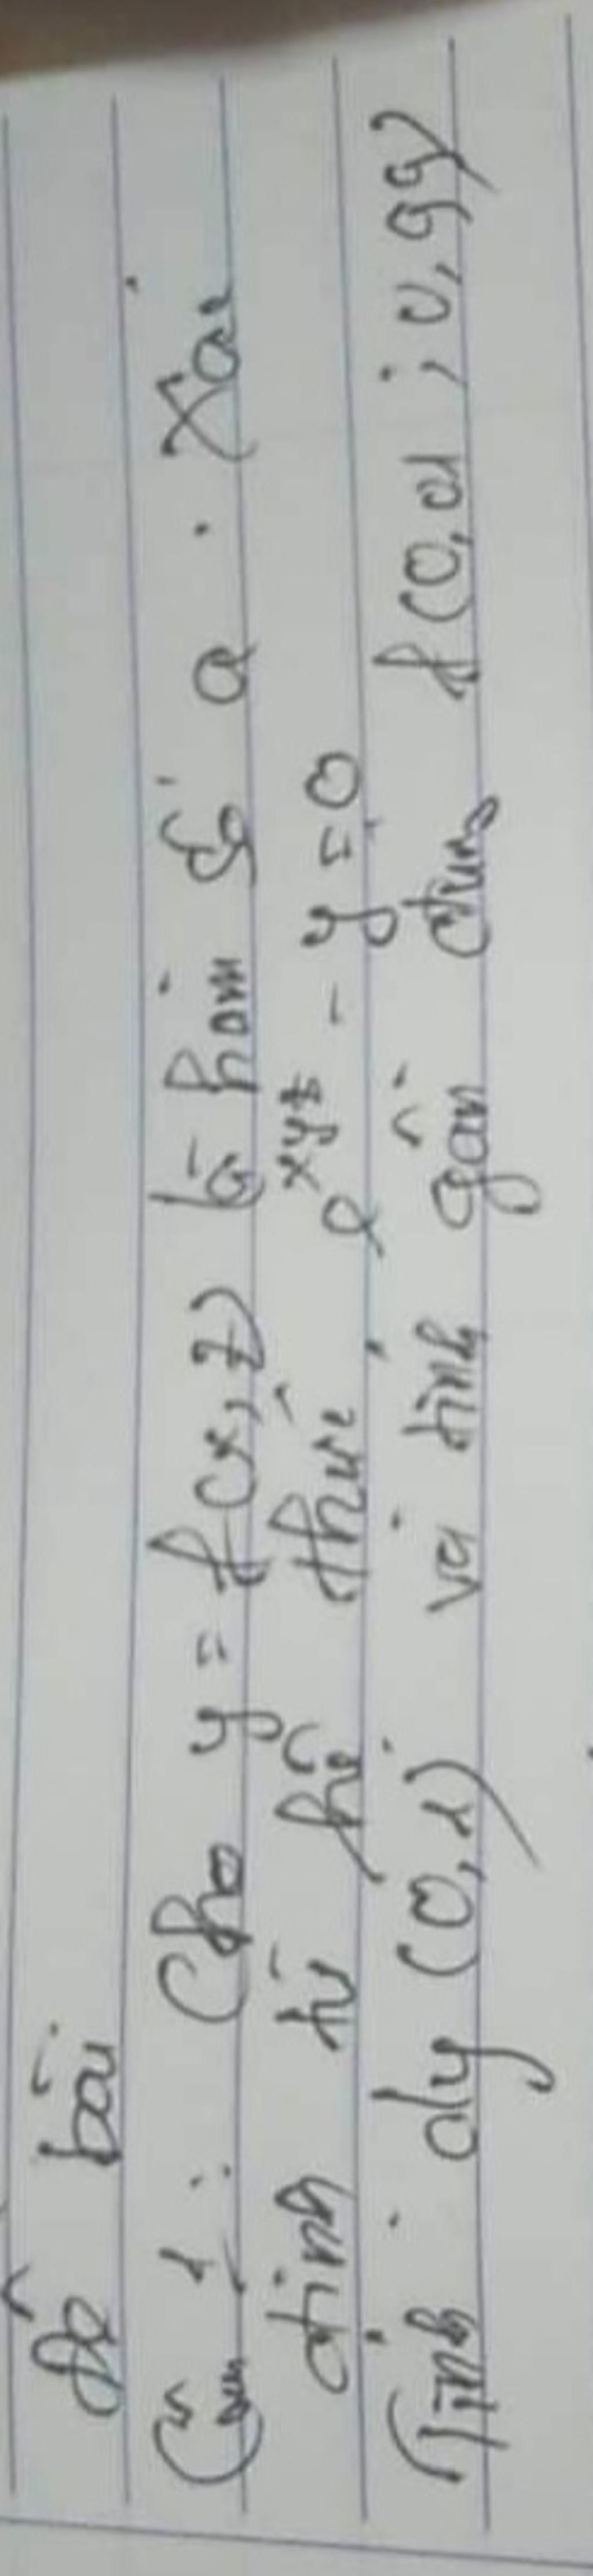 Đề bài
Câu 1: Cho y = f(x, z) là hàm số ẩn. Xác
định từ hệ thức e^{xyz} - y = 0
Tính: dy (0, 1) và tính gần đúng f(0,01; 0,99)